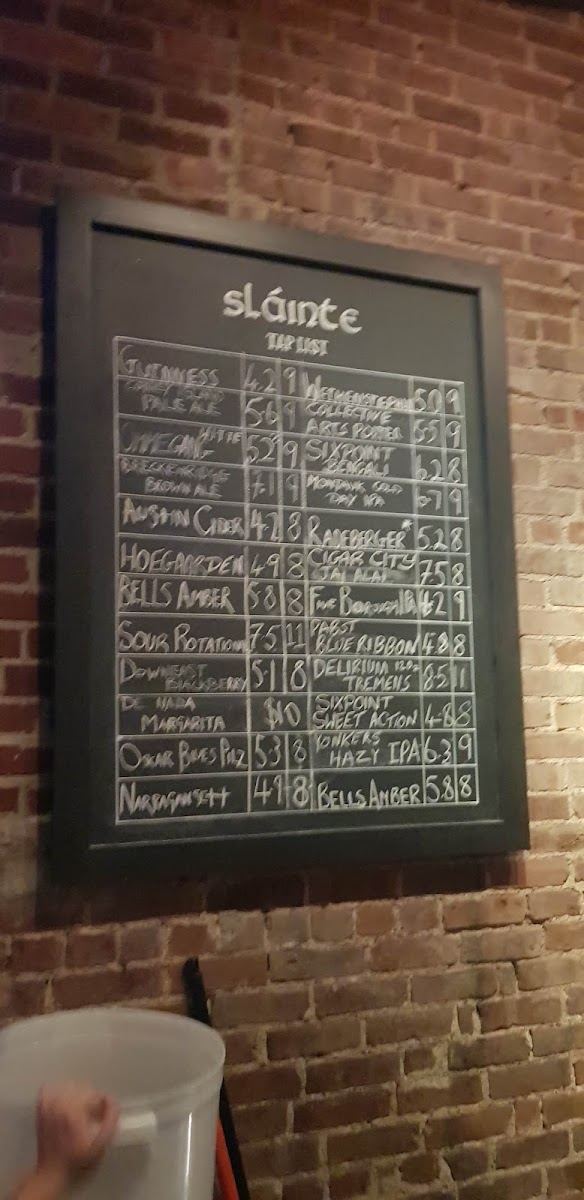 sláinte
TAP LIST
GUINNESS 4.2 9
PALE ALE 5.6 9
OMMEGANG WITTE 5.2 9
BRECKENRIDGE
BROWN ALE 7.1 9
AUSTIN CIDER 4.2 8
HOEGAARDEN 4.9 8
BELLS AMBER 5.8 8
SOUR ROTATION 7.5 11
DOWNEAST
BLACKBERRY 5.1 8
DE NADA
MARGARITA $10
OSKAR BLUES PILZ 5.3 8
NARRAGANSETT 4.9 8
5.0 9
COLLECTIVE
ARTS PORTER 5.5 9
SIXPOINT
BENGALI 6.2 8
DAY IPA 6.7 9
RADEBERGER 5.2 8
CIGAR CITY
JAI ALAI 7.5 8
FIVE BOROUGH IPA 4.2 9
PABST
BLUE RIBBON 4.8 8
DELIRIUM 12oz
TREMENS 8.5 11
SIXPOINT
SWEET ACTION 4.8 8
YONKERS
HAZY IPA 6.3 9
BELLS AMBER 5.8 8